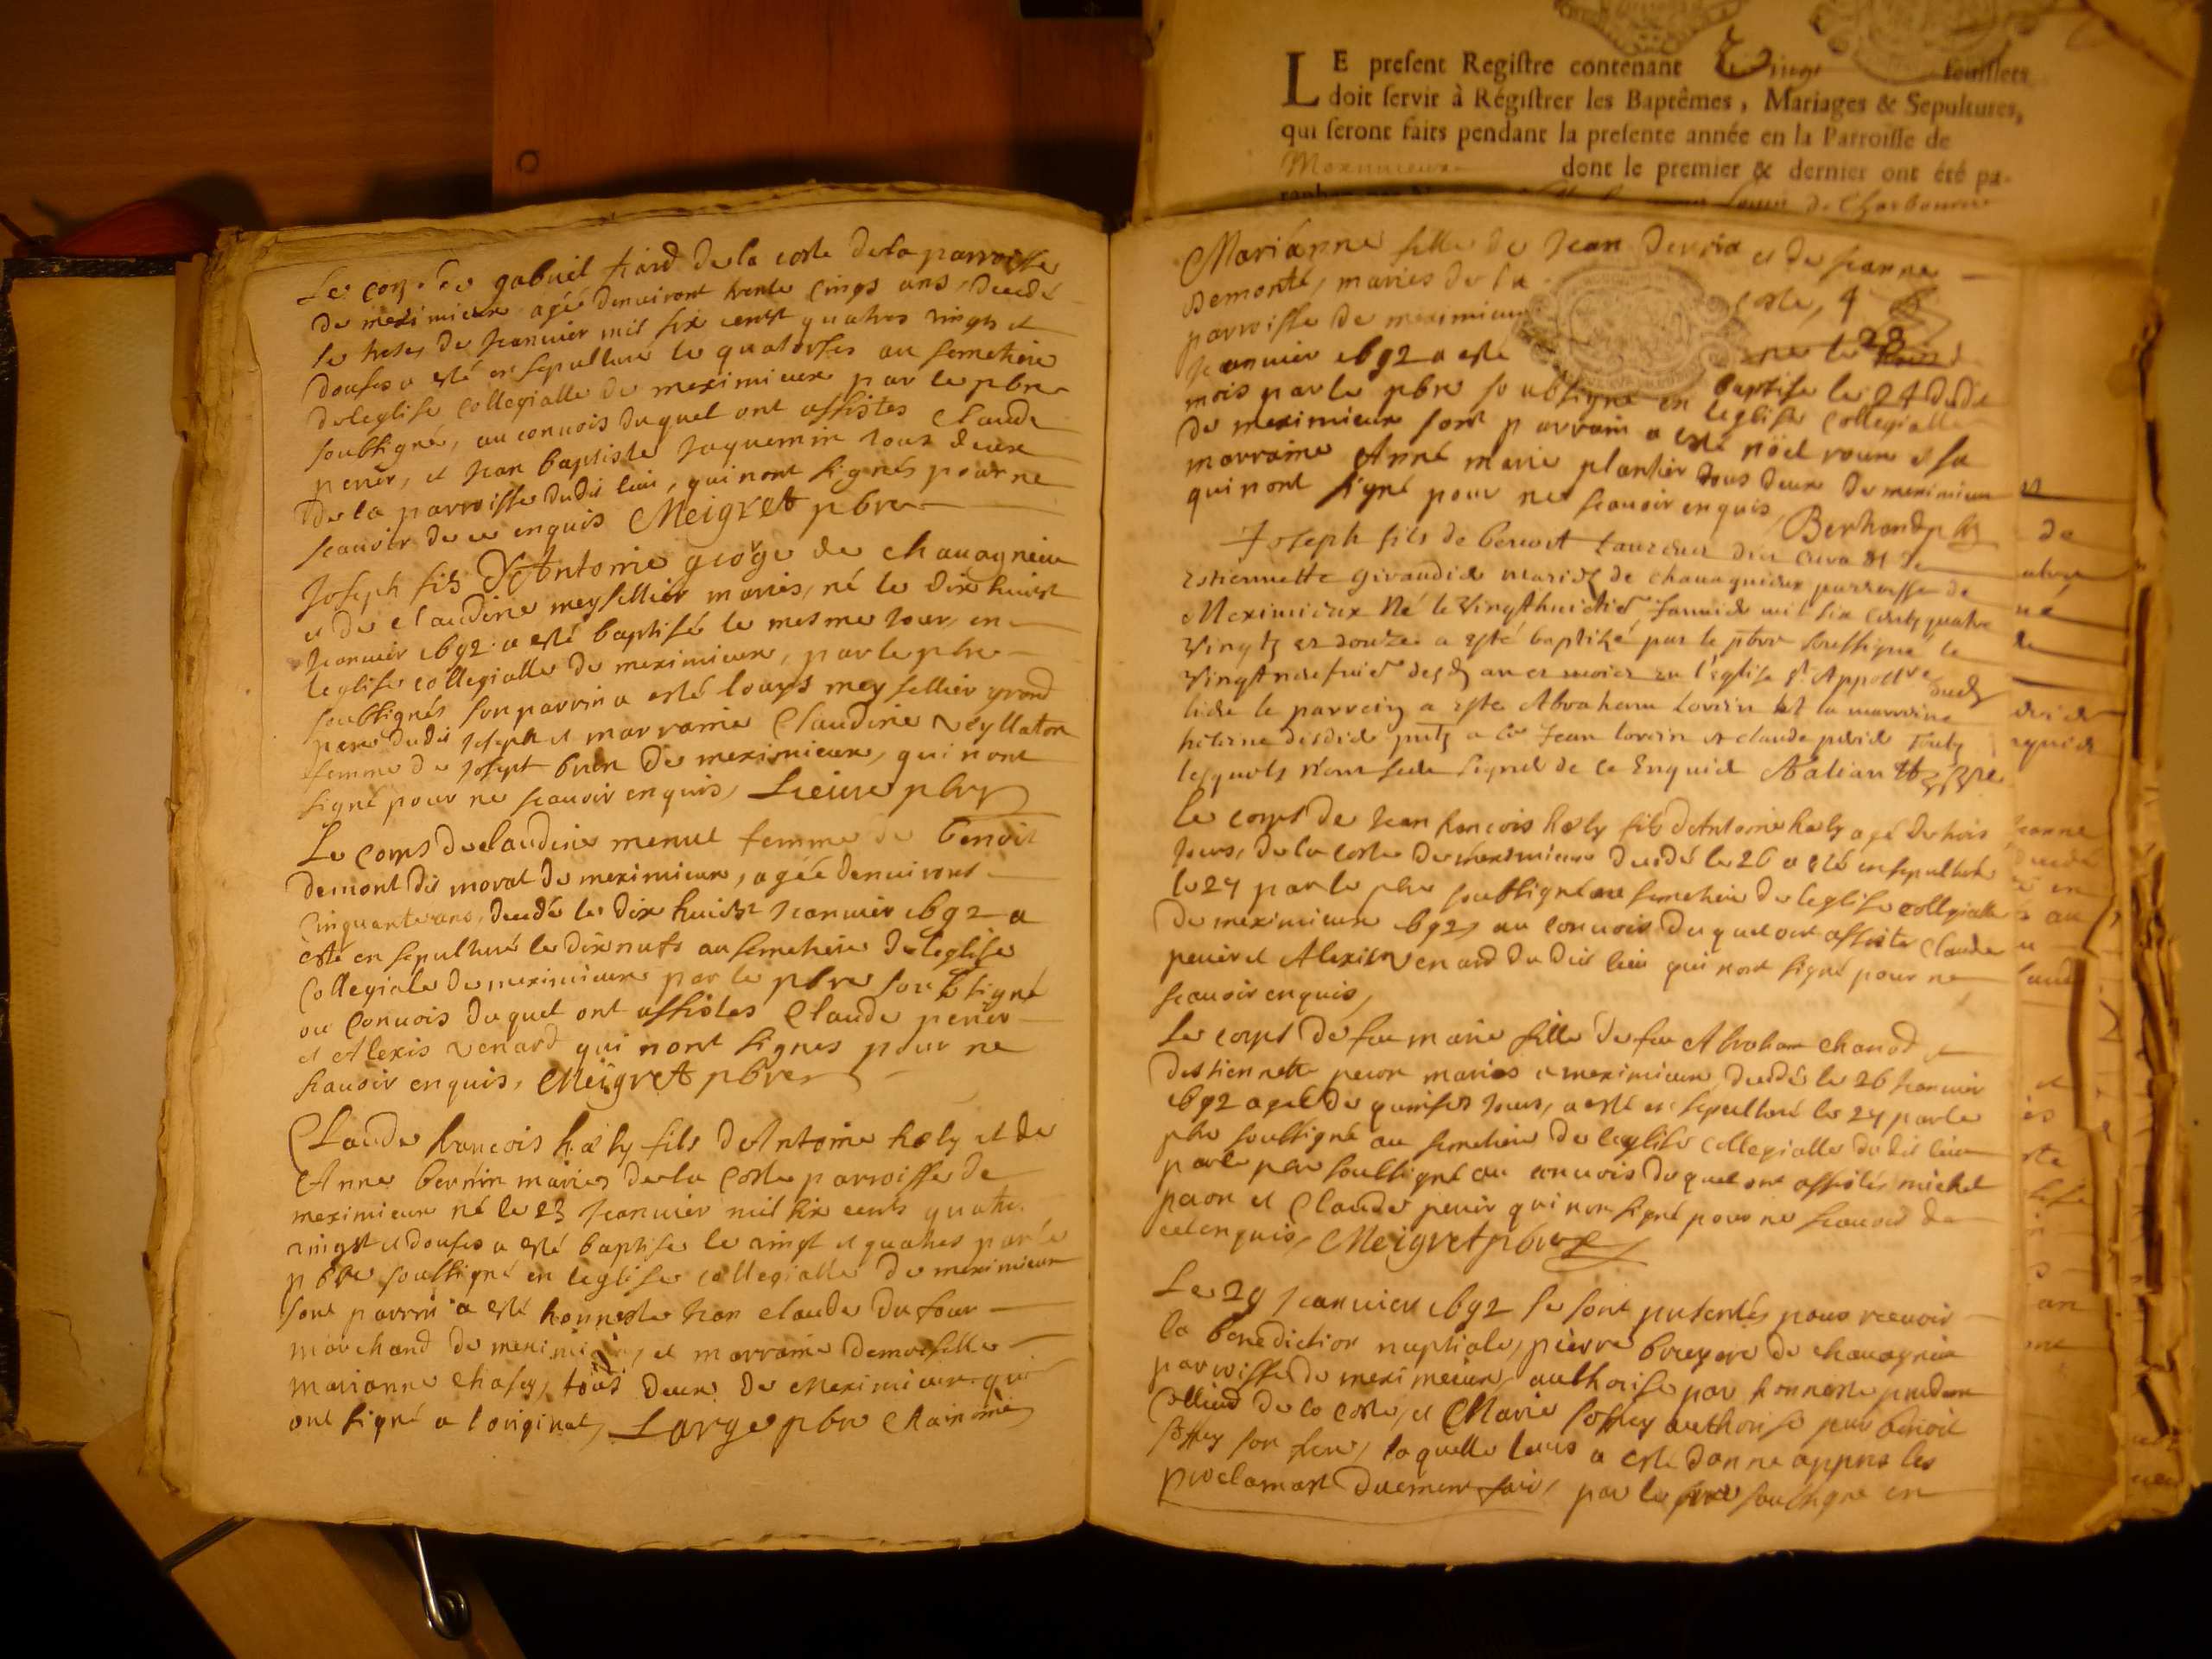 LE present Registre contenant Vingt feuillets
doit servir à Régistrer les Baptêmes, Mariages & Sepultures,
qui seront faits pendant la presente année en la Parroisse de
Meximieux dont le premier & dernier ont été pa-
Le corps de gabriel tiard de la coste de la parroisse
de meximieux agé denuiront trente cinqs ans, decedé
le treses de Jeanuier mil six cents quatres vingts et
douses a esté ensepulturé le quatorses au semetiere
de leglise collegialle de meximieux par le pbre
soubsigné, au conuois duquel ont assistes Claude
perier, et Jean baptiste Jaquemin tous deux
de la parroisse dudit lieu, qui nont signés pour ne
scauoir de ce enquis Meigret pbre
Joseph fils d'Antoine george de chauagnieu
et de claudine meysellier mariés, né le dix huict
Jeanuier 1692 a esté baptisé le mesme jour en
leglise collegialle de meximieux, par le pbre
soubsignés son parrin a esté louys meysellier grand
pere dudit Joseph et marraine Claudine veyllaton
femme de Josept brun de meximieux, qui nont
signé pour ne scauoir enquis, pbre
Le corps de claudine menut femme de benoit
demont dit morat de meximieux, agée denuiront
cinquante ans, decedé le dix huict Jeanuier 1692 a
esté ensepulturé le dixnufs au semetiere de leglise
Collegiale de meximieux par le pbre soubsigné
au conuois duquel ont assistes Claude perier
et Alexis venard qui nont signes pour ne
scauoir enquis, Meigret pbre
Claude francois fils dAntoine et de
Anne bernin mariés de la Coste parroisse de
meximieux né le 23 Jeanuier mil six cents quatre
vingt et douses a esté baptise le vingt et quatres par le
pbre soubsigné en leglise collegialle de meximieux
sont parrin a esté honneste Jean claude du four
marchand de meximieux, et marraine demoiselle
marianne tous deux de Meximieux qui
ont signé a loriginal, Large pbre Chainoine
Marianne fille de Jean et de Jeanne
Demonté, mariés de la coste,
parroisse de meximieux
Jeanuier 1692 a esté baptise le 24 dudit
mois par le pbre soubsigné en leglise collegialle
de meximieux sont parrain a esté nöel roux et sa
marraine Anne marie plantier tous deux de meximieux
qui nont signé pour ne scauoir enquis, Bertrand pbre
Joseph fils de benoit
Estiennette mariés de chauagnieux parroisse de
Meximieux Né le Vingthuictie Januier mil six cents quatre
Vingts et douze a esté baptizé par le pbre soussigné le
en l'eglise St Appol
lesquels n'ont signé de ce Enquis
Le corps de Jean francois fils dAntoine agé de trois
jours, de la coste de meximieux decedé le 26 a esté ensepulturé
le 27 par le pbre soubsigné au semetiere de leglise collegialle
de meximieux 1692, au conuois duquel ont assisté Claude
perier et Alexis venard du dit lieu qui nont signé pour ne
scauoir enquis,
Le corps de feu marie fille de feu Abraham chanod et
destiennette peron mariés a meximieux, decedée le 26 Jeanuier
1692 agée de quinses jours, a esté ensepulturé le 27 par le
pbre soubsigné au semetiere de leglise collegialle dudit lieu
par le pbre soubsigné au conuois duquel ont assistés michel
peron et Claude perier qui nont signé pour ne scauoir de
ce enquis, Meigret pbre
Le 29 Jeanuier 1692 se sont presentés pour receuoir
la benediction nuptiale, pierre bruyere de chauagnieu
parroisse de meximieux, authorisé par honneste
de la coste, et Marie authorisé par benoit
son frere, laquelle leurs a esté donne appres les
proclamart duement fait, par le pbre soubsigné en